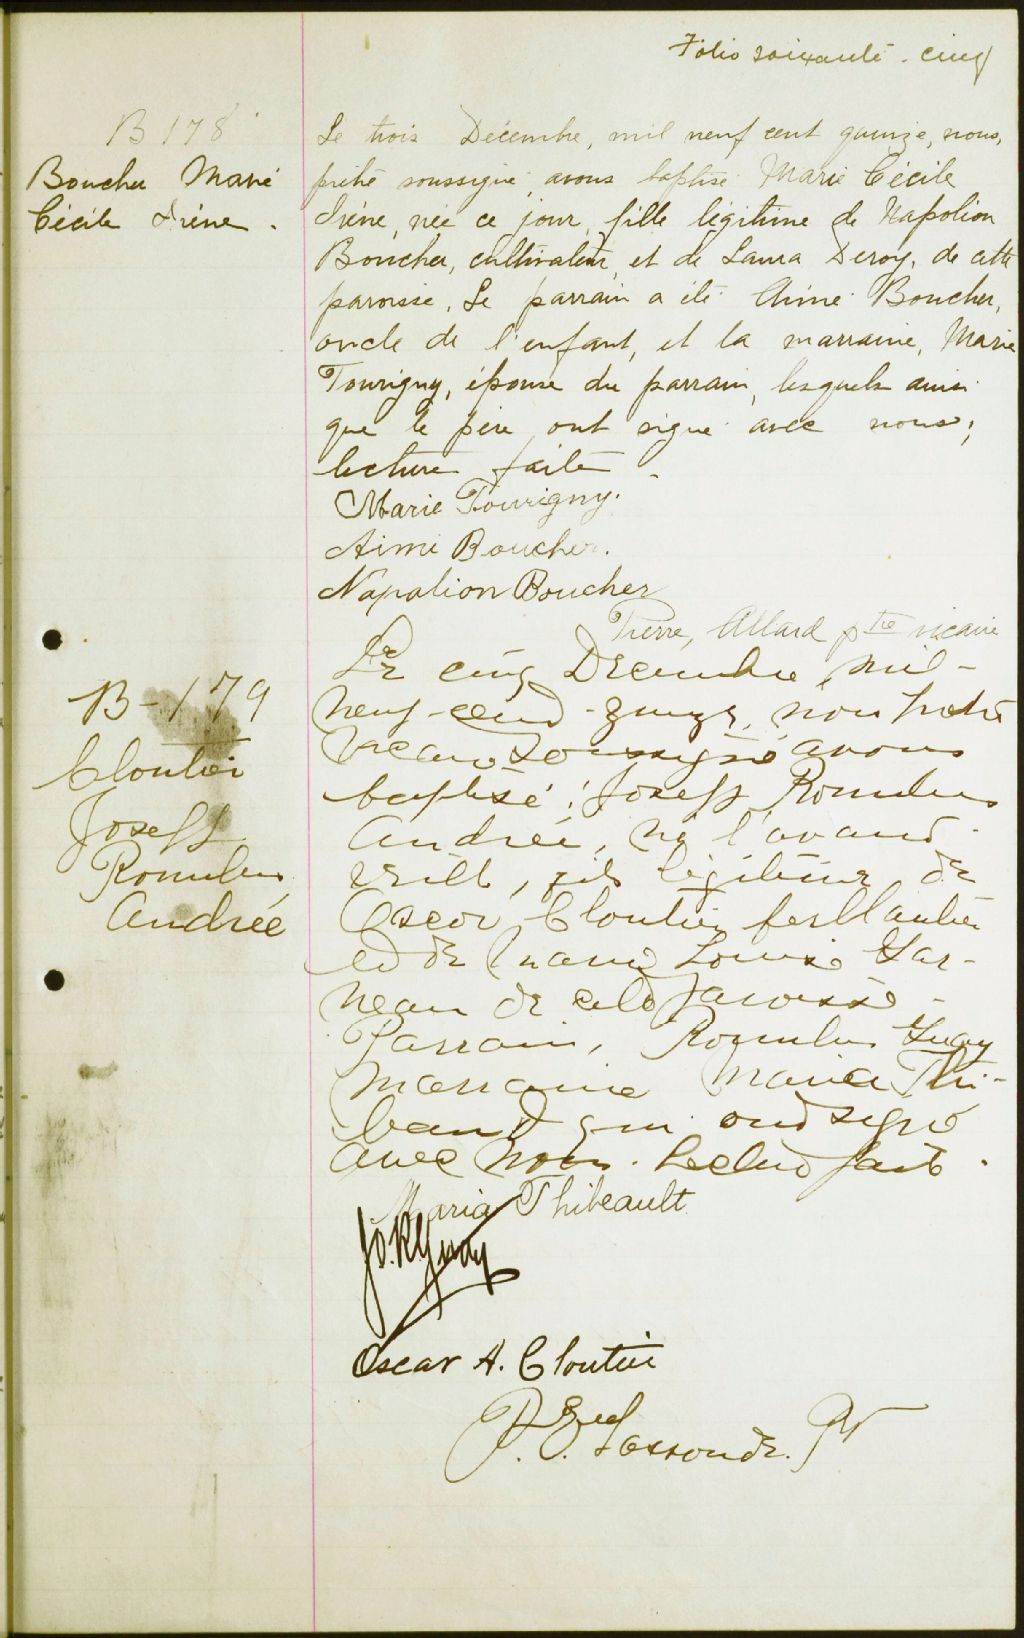 Folio soixante-cinq
B 178
Boucher Marie
Cécile Irène.
Le trois Décembre, mil neuf cent quinze, nous,
prêtre soussigné avons baptisé Marie Cécile
Irène, née ce jour, fille légitime de Napoléon
Boucher, cultivateur, et de Laura Deroy, de cette
paroisse. Le parrain a été Aimé Boucher,
oncle de l'enfant, et la marraine, Marie
Tourigny, épouse du parrain, lesquels ainsi
que le père ont signé avec nous;
lecture faite.
Marie Tourigny.
Aimé Boucher.
Napoléon Boucher
Pierre, Allard ptre vicaire
B-179
Cloutier
Joseph
Romulus
Andrée
Le cinq Décembre, mil-
neuf-cent-quinze, nous prêtre
vicaire soussigné avons
baptisé: Joseph Romulus
Andrée, né l'avant
veille, fils légitime de
Oscar Cloutier ferblantier
et de Marie Louise Gar-
neau de cette paroisse.
Parrain, Romulus Guay
marraine Maria Thi-
bault qui ont signé
avec nous. Lecture faite.
Maria Thibeault
Jos. R Guay
Oscar A. Cloutier
Lassonde. Ptr